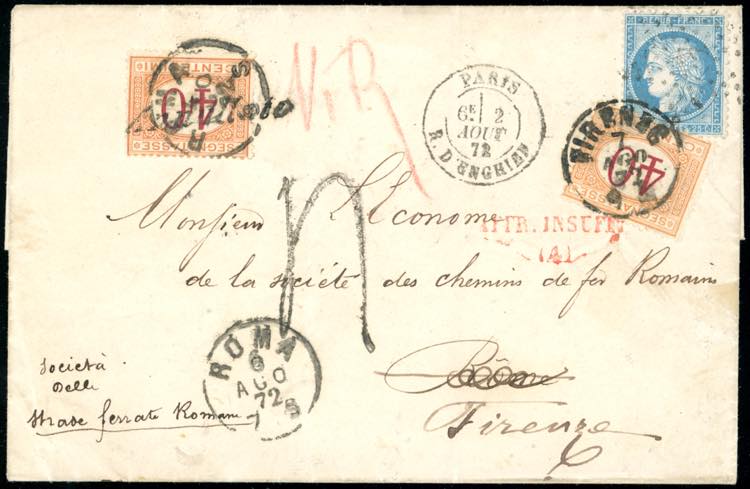 REPUB. FRANC.
25 C
SEGNATASSE
CENTESIMI
40
ROMA
PARIS
6E 2
AOUT
72
R. D'ENGHIEN
FIRENZE
7
AGO
40
SEGNATASSE
Monsieur L'Econome
AFFR. INSUFF.
(A)
de la société des chemins de fer Romains
ROMA
6
AGO
72
7 S
Rôme
Firenze
Società
Delle
Strade ferrate Romane